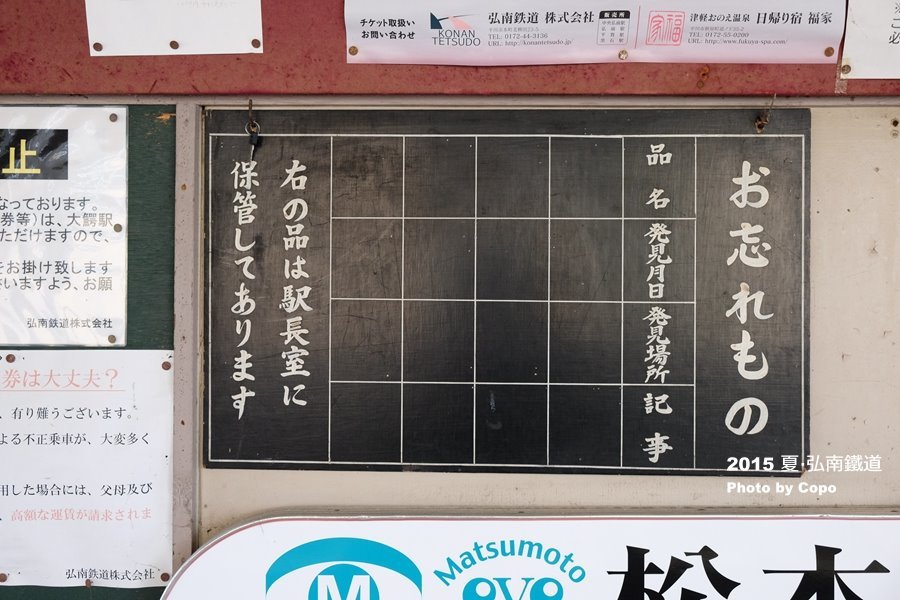 チケット取扱い
お問い合わせ
KONAN
TETSUDO
弘南鉄道 株式会社
TEL: 0172-44-3136
URL: http://konantetsudo.jp/
販売所
家福
津軽おのえ温泉 日帰り宿 福家
TEL: 0172-55-0200
URL: http://www.fukuya-spa.com/
止
なっております。
券等)は、大鰐駅
ただけますので、
をお掛け致します
さいますよう、お願
弘南鉄道株式会社
券は大丈夫?
、有り難うございます。
よる不正乗車が、大変多く
用した場合には、父母及び
、高額な運賃が請求されま
弘南鉄道株式会社
お忘れもの
品名
発見月日
発見場所
記事
右の品は駅長室に
保管してあります
2015 夏·弘南鐵道
Photo by Copo
M
Matsumoto
eye
松本